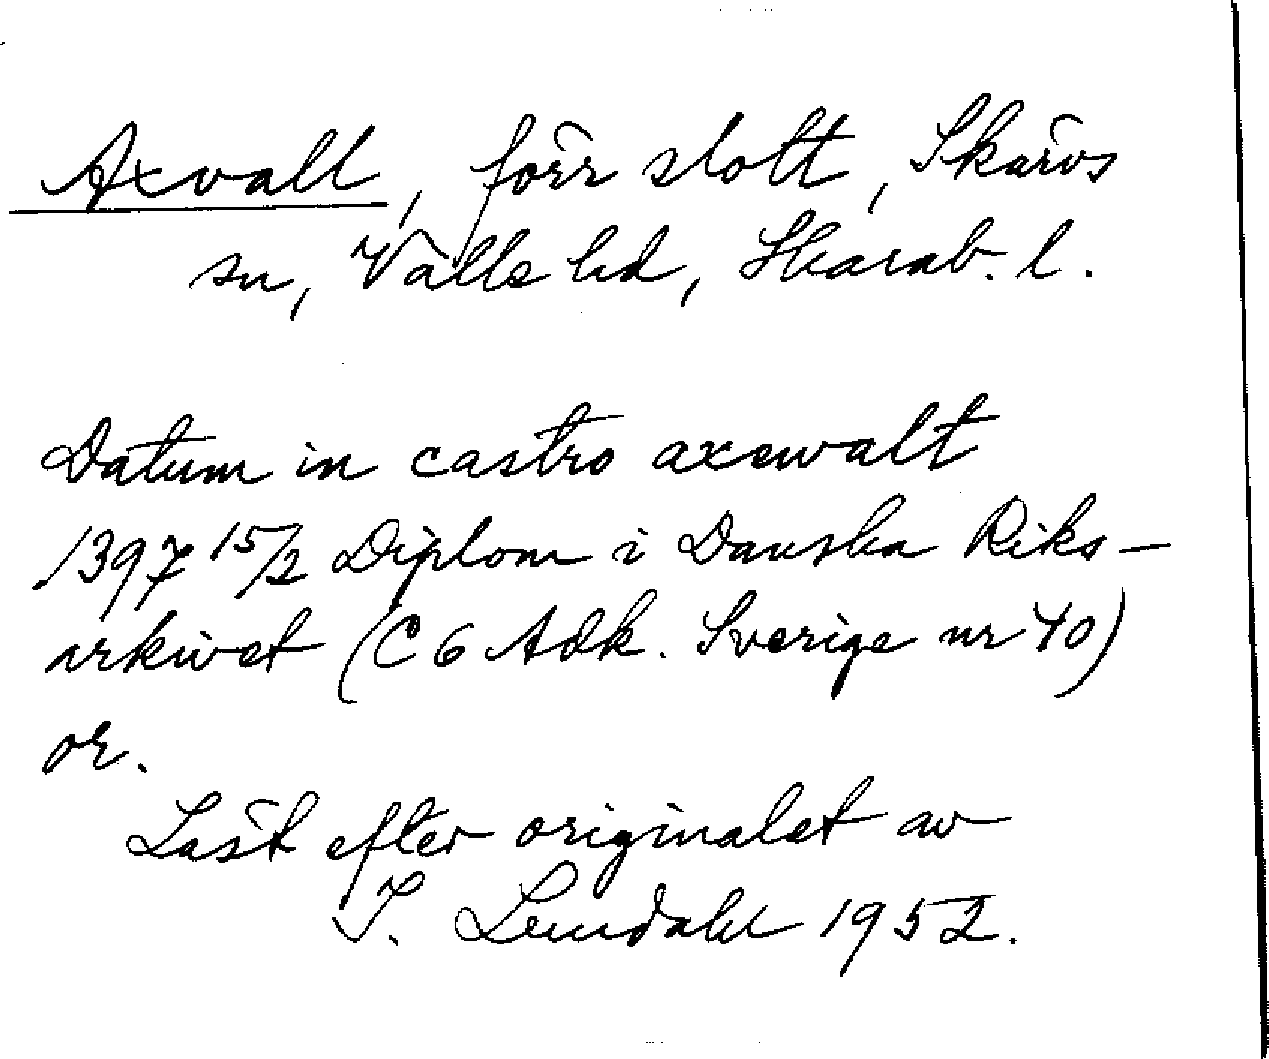 Axvall, förr slott, Skärvs
sn, Valle hd, Skarab. l.
Datum in castro axewalt
1397 15/2 Diplom i Danska Riks-
arkivet (C6 Adk. Sverige nr 40)
or.
Läst efter originalet av
I. Lundahl 1952.